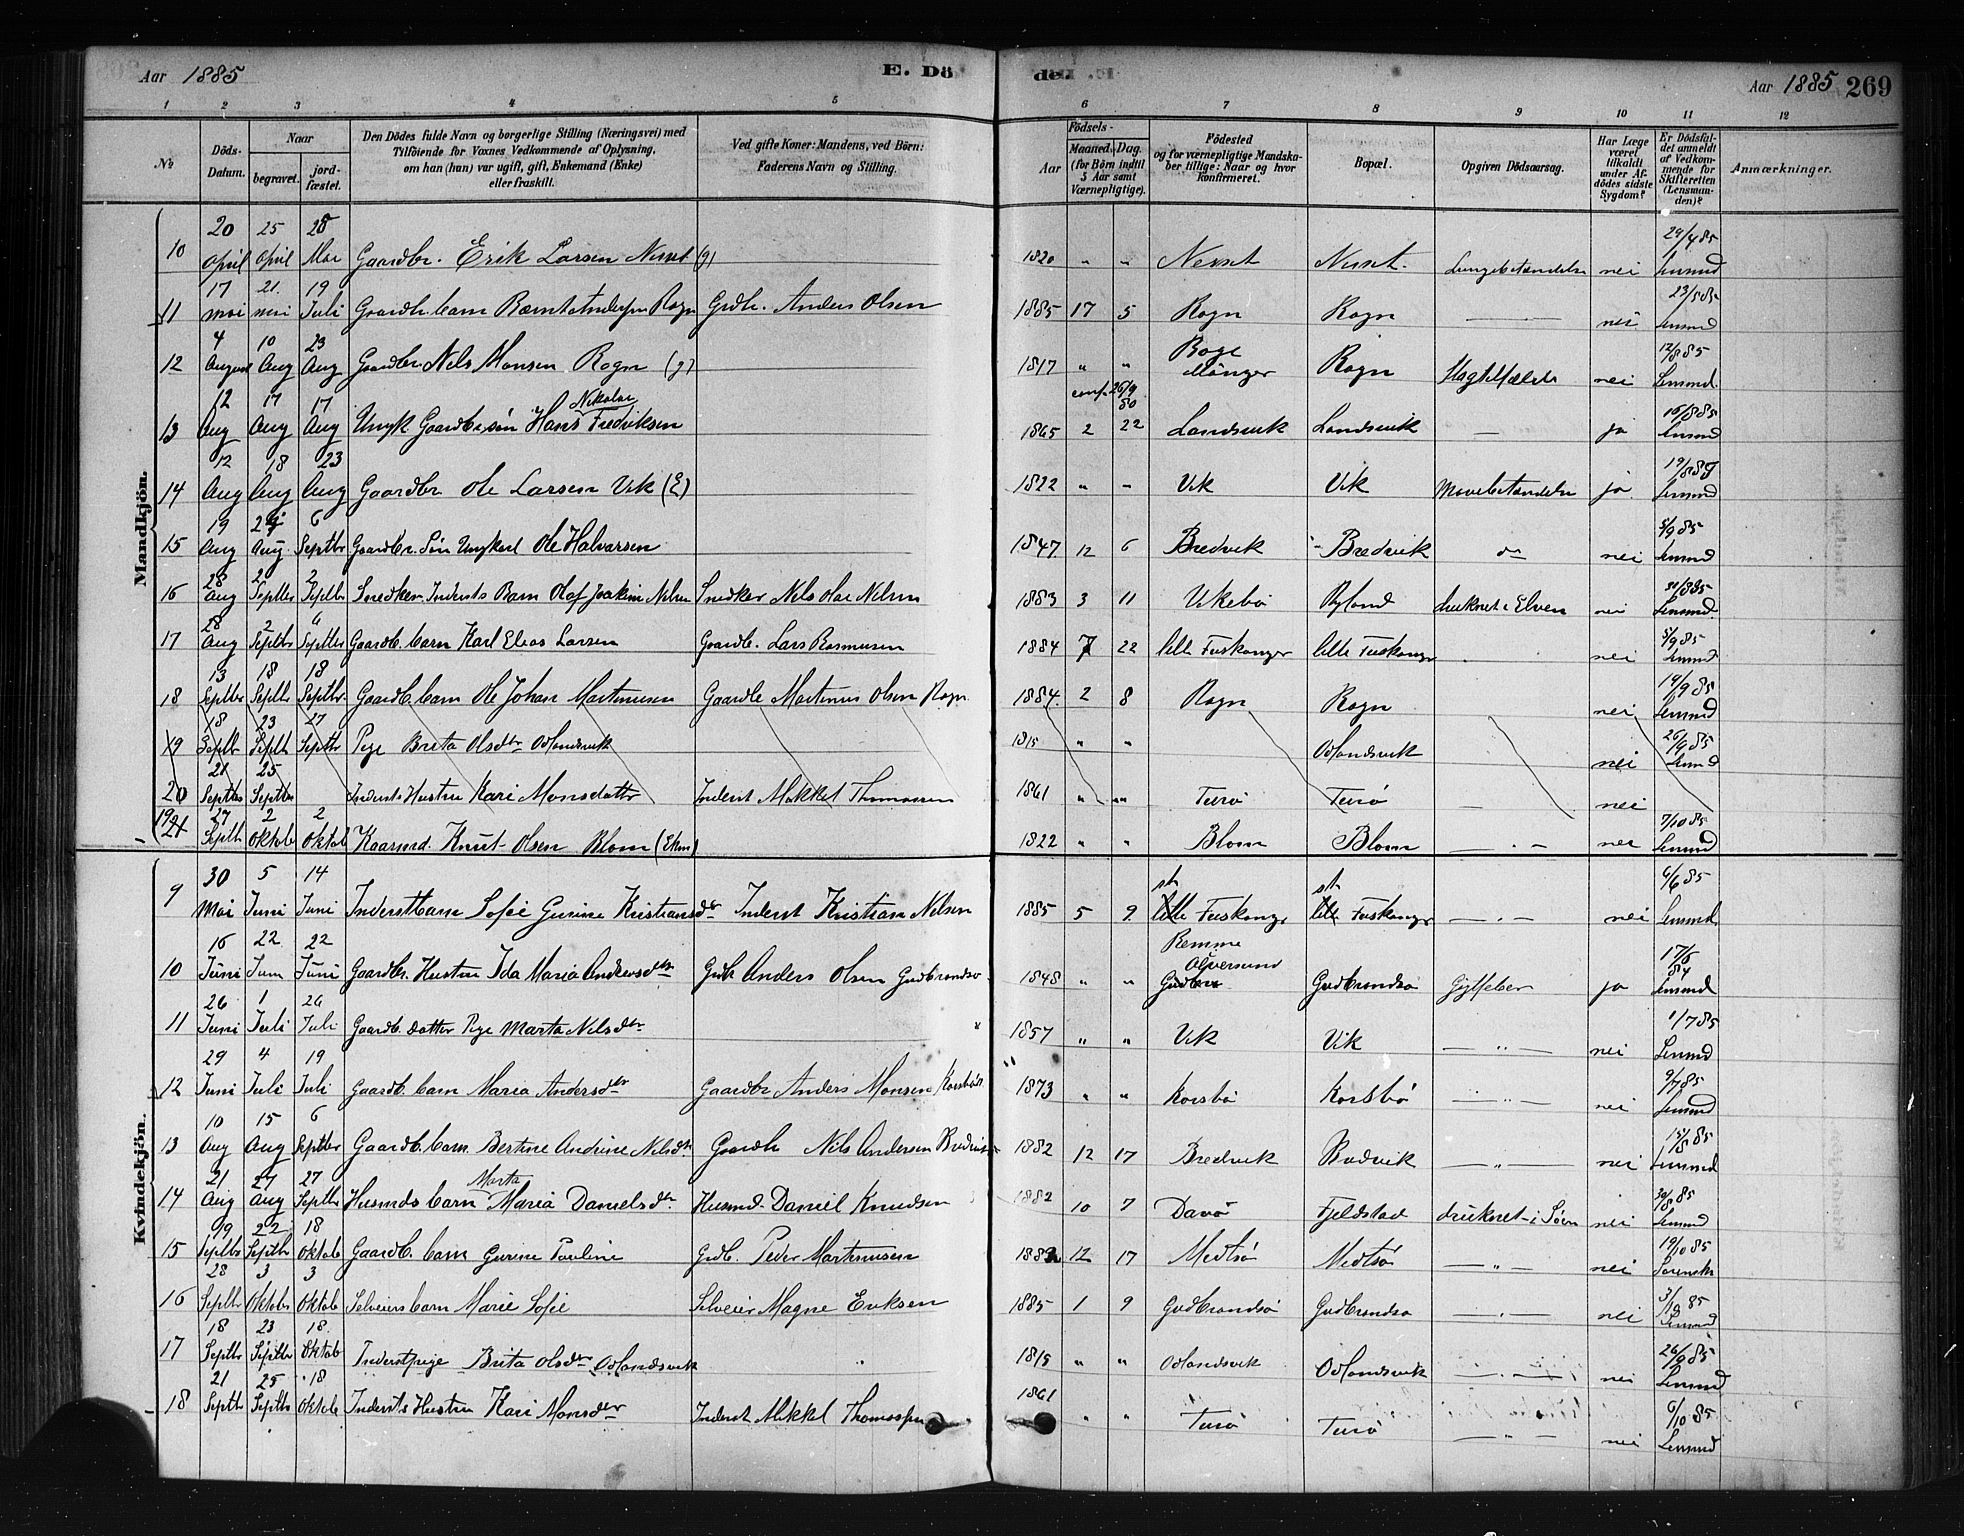 Aar 1885 E. Dö
de. Aar 1885 269
1 2 3 4 5 6 7 8 9 10 11 12
№ Döds-Datum. Naar begravet. jordfæstet. Den Dödes fulde Navn og borgerlige Stilling (Næringsvei) med Tilföiende for Voxnes Vedkommende af Oplysning, om han (hun) var ugift, gift, Enkemand (Enke) eller fraskilt. Ved gifte Koner: Mandens, ved Börn: Faderens Navn og Stilling.
Födsels- Aar Maaned. Dag. (for Börn indtil 5 Aar samt Værnepligtige). Födested og for værnepligtige Mandskaber tillige: Naar og hvor konfirmeret. Bopæl. Opgiven Dödsaarsag. Har Læge været tilkaldt under Afdödes sidste Sygdom? Er Dödsfaldet anmeldt af Vedkommende for Skifteretten (Lensmanden)? Anmærkninger.
Mandkjön.
10 20 April 25 April 28 Mai Gaardbr. Erik Larsen Nesset (g) 1820 " " Nesset Nesset. Lungebetændelse nei 29/4 85 Lensmd
11 17 mai 21 mai 19 Juli Gaardb. barn Bernt Andersen Rogn Grdb. Anders Olsen 1885 17 5 Rogn Rogn — nei 23/5 85 Lensmd
12 4 August 10 Aug 23 Aug Gaardbr Nels Monsen Rogn (g) 1817 " " Boge Manger Rogn Slagtilfælde nei 12/8 85 Lensmd.
13 12 Aug 17 Aug 17 Aug Ungk. Gaardbr. sön Hans Nikolai Fredriksen conf. 26/9 80 1865 2 22 Landsvik Landsvik — ja 16/8 85 Lensmd
14 12 Aug 18 Aug 23 Aug Gaardbr Ole Larsen Vik (E) 1822 " " Vik Vik Mavebetændelse ja 19/8 85 Lensmd
15 19 Aug 24 Aug. 6 Septbr Gaardbr. Sön Ungkarl Ole Halvorsen 1847 12 6 Bredvik Bredvik do nei 5/9 85 Lensmd
16 28 Aug 2 Septbr 2 Septb Snedker Inderts Barn Olaf Joakim Nelsen Snedker Nels Olai Nelsen 1883 3 11 Ukebø Ryland druknet i Elven nei 31/8 85 Lensmd.
17 28 Aug 2 Septbr 6 Septbr Gaardb. barn Karl Elias Larsen Gaardb. Lars Rasmusen 1884 7 22 lille Fuskanger lille Fuskanger nei 5/9 85 Lensmd
18 13 Septbr 18 Septbr 18 Septbr. Gaardb. barn Ole Johan Martinusen Gaardb Martinus Olsen Rogn. 1884. 2 8 Rogn Rogn nei 19/9 85 Lensmd
19 18 Septbr 23 Septb 27 Septbr Pige Brita Olsdtr Odlandsvik 1815 " " Odlandsvik nei 26/9 85 Lensmd
20 21 Septbr 25 Septbr Inderts Hustru Kari Monsdatter Indert Mikkel Thomassen 1861 " " Turö Turö — nei
19 21 27 Septb 2 Oktob 2 Oktob Kaarmd. Knut Olsen Blom (Ekm) 1822 " " Blom Blom — nei 7/10 85 Lensmd
Kvindekjön.
9 30 Mai 5 Juni 14 Juni Inderstbarn Sofie Gurine Kristiansdr Inderst Kristian Nelsen 1885 5 9 st lille Fuskanger st lille Fuskanger — nei 6/6 85 Lensmd
10 16 Juni 22 Juni 22 Juni Gaardbr. Hustru Ida Maria Andersdtr Grdb Anders Olsen Gudbrandsø 1848 " " Remme Alversund Gudbrandsö ja 17/6 84 Lensmd
11 26 Juni 1 Juli 26 Juli Gaardb. datter Pige Marta Nelsdtr 1857 " " Vik Vik — nei 1/7 85 Lensmd
12 29 Juni 4 Juli 19 Juli Gaardb. barn Maria Andersdr Gaardbr Anders Monsen Korsbö 1873 " " Korsbö Korsbö — nei 9/7 85 Lensmd
13 10 Aug 15 Aug 6 Septbr Gaardb. barn Bertine Andrine Nelsdr. Gaardb Nils Andersen Bredvik 1882 12 17 Bredvik Bredvik — nei 13/8 85 Lensmd
14 21 Aug 27 Aug 27 Septbr Husmds barn Marta Maria Danielsdr Husmd. Daniel Knudsen 1882 10 7 Davö Fjeldstad druknet i Söen nei 30/8 85 Lensmd
15 19 Septbr 22 Septbr 18 Oktob Gaardb. barn Gurine Pauline Grdb. Peder Martinusen 1882 12 17 Midtsö Midtsö — nei 19/10 85
16 28 Septbr 3 Oktobr 3 Oktob Selveiers barn Marie Sofie Selveier Magne Eriksen 1885 1 9 Gudbrandsö Gudbrandsö nei 3/10 85 Lensmd
17 18 Septbr 23 Septbr 18. Oktob Inderstpige Brita Olsdr Odlandsvik 1815 " " Odlandsvik Odlandsvik — nei 26/9 85 Lensmd
18 21 Septb 25 Septbr 18 Oktob Inderts Hustru Kari Monsdtr Inderst Mikkel Thomassen 1861 " " Turö Turö — nei 6/10 85 Lensmd